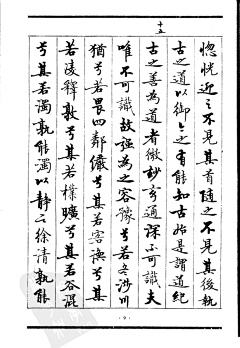 惚恍近之不見其首隨之不見其後執
古之道以御今之有能知古始是謂道紀
十五
古之善為道者微妙玄通深不可識夫
唯不可識故強為之容豫兮若冬涉川
猶兮若畏四鄰儼兮其若客渙兮其
若凌釋敦兮其若樸曠兮其若谷混
兮其若濁孰能濁以靜之徐清孰能
·9·